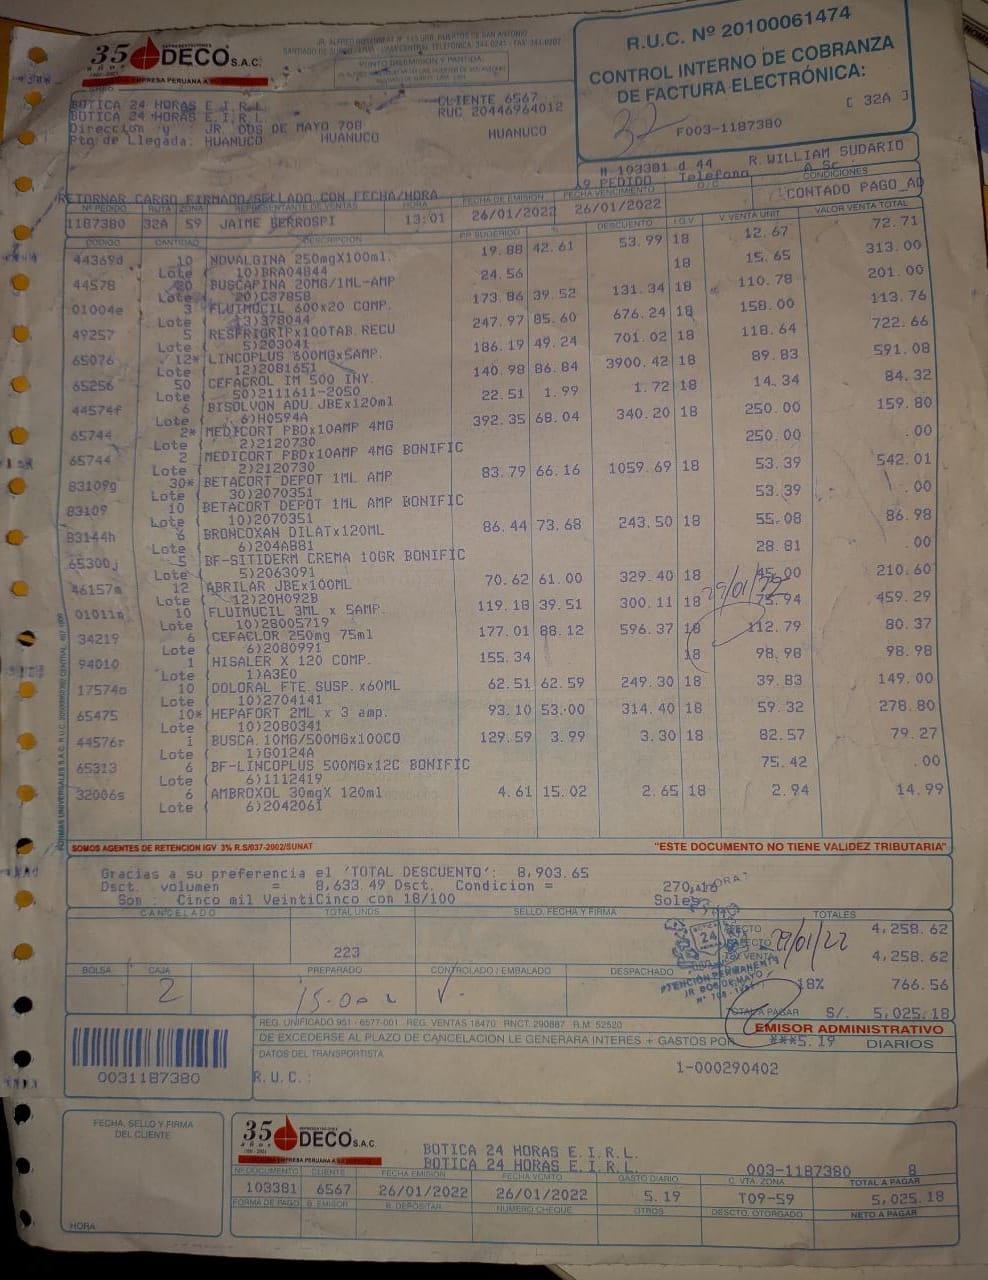 35 AÑOS
REPRESENTACIONES
DECO S.A.C.
EMPRESA PERUANA A SU
JR. ALFREDO ROSENBLAT N° 145 URB. HUERTOS DE SAN ANTONIO
SANTIAGO DE SURCO - LIMA CENTRAL TELEFONICA: 344-0241 - FAX:
PUNTO DE EMISION Y PARTIDA:
R.U.C. Nº 20100061474
CONTROL INTERNO DE COBRANZA
DE FACTURA ELECTRÓNICA:
[ 32A ]
32
F003-1187380
BOTICA 24 HORAS E.I.R.L. CLIENTE 6567
BOTICA 24 HORAS E.I.R.L. RUC 20446964012
Direccion y : JR. DOS DE MAYO 708
Pto de Llegada: HUANUCO HUANUCO HUANUCO
# 103381 d 44 R.WILLIAM SUDARIO
RETORNAR CARGO FIRMADO/SELLADO CON FECHA/HORA
Nº PEDIDO RUTA ZONA REPRESENTANTE DE VENTAS HORA FECHA DE EMISION FECHA VENCIMIENTO Nº PEDIDO Telefono O/C CONDICIONES
1187380 32A 59 JAIME BERROSPI 13:01 26/01/2022 26/01/2022 CONTADO PAGO_AD
CODIGO CANTIDAD DESCRIPCION P.P. SUGERIDO DESCUENTO I.G.V. V. VENTA UNIT VALOR VENTA TOTAL
44369d 10 NOVALGINA 250mgX100ml. 19.88 42.61 53.99 18 12.67 72.71
Lote ( 10)BRA04844
44578 20 BUSCAPINA 20MG/1ML-AMP 24.56 18 15.65 313.00
Lote ( 20)C37858
01004e 3 FLUIMUCIL 600x20 COMP. 173.86 39.52 131.34 18 110.78 201.00
Lote ( 13)378044
49257 5 RESFRIGRIPx100TAB.RECU 247.97 85.60 676.24 18 158.00 113.76
Lote ( 5)203041
65076 12* LINCOPLUS 600MGx5AMP. 186.19 49.24 701.02 18 118.64 722.66
Lote ( 12)2081651
65256 50 CEFACROL IM 500 INY. 140.98 86.84 3900.42 18 89.83 591.08
Lote ( 50)2111611-2050
44574f 6 BISOLVON ADU.JBEx120ml 22.51 1.99 1.72 18 14.34 84.32
Lote ( 6)H0594A
65744 2* MEDICORT PBDx10AMP 4MG 392.35 68.04 340.20 18 250.00 159.80
Lote ( 2)2120730
65744 2 MEDICORT PBDx10AMP 4MG BONIFIC 250.00 .00
Lote ( 2)2120730
83109g 30* BETACORT DEPOT 1ML AMP 83.79 66.16 1059.69 18 53.39 542.01
Lote ( 30)2070351
83109 10 BETACORT DEPOT 1ML AMP BONIFIC 53.39 .00
Lote ( 10)2070351
83144h 6 BRONCOXAN DILATx120ML 86.44 73.68 243.50 18 55.08 86.98
Lote ( 6)204AB81
65300j 5 BF-SITIDERM CREMA 10GR BONIFIC 28.81 .00
Lote ( 5)2063091
46157m 12 ABRILAR JBEx100ML 70.62 61.00 329.40 18 45.00 210.60
Lote ( 12)20H092B
01011n 10 FLUIMUCIL 3ML x 5AMP. 119.18 39.51 300.11 18 75.94 459.29
Lote ( 10)28005719
34219 6 CEFACLOR 250mg 75ml 177.01 88.12 596.37 18 112.79 80.37
Lote ( 6)2080991
94010 1 HISALER X 120 COMP. 155.34 18 98.98 98.98
Lote ( 1)A3E0
17574o 10 DOLORAL FTE.SUSP.x60ML 62.51 62.59 249.30 18 39.83 149.00
Lote ( 10)2704141
65475 10* HEPAFORT 2ML x 3 amp. 93.10 53.00 314.40 18 59.32 278.80
Lote ( 10)2080341
44576r 1 BUSCA.10MG/500MGx100CO 129.59 3.99 3.30 18 82.57 79.27
Lote ( 1)G0124A
65313 6 BF-LINCOPLUS 500MGx12C BONIFIC 75.42 .00
Lote ( 6)1112419
32006s 6 AMBROXOL 30mgX 120ml 4.61 15.02 2.65 18 2.94 14.99
Lote ( 6)2042061
29/01/22
SOMOS AGENTES DE RETENCION IGV 3% R.S/037-2002/SUNAT
"ESTE DOCUMENTO NO TIENE VALIDEZ TRIBUTARIA"
Gracias a su preferencia el 'TOTAL DESCUENTO': 8,903.65
Dsct. volumen = 8,633.49 Dsct. Condicion = 270.16
Son : Cinco mil VeintiCinco con 18/100 Soles
CANCELADO TOTAL UNDS SELLO, FECHA Y FIRMA TOTALES
223
4,258.62
29/01/22
4,258.62
18% 766.56
TOTAL A PAGAR S/. 5,025.18
24
ATENCION PERMANENTE
JR DOS DE MAYO
BOLSA CAJA PREPARADO CONTROLADO / EMBALADO DESPACHADO
2
EMISOR ADMINISTRATIVO
REG. UNIFICADO 951 - 6577-001 REG. VENTAS 18470 RNCT. 290887 R.M. 52520
DE EXCEDERSE AL PLAZO DE CANCELACION LE GENERARA INTERES + GASTOS POR ***5.19 DIARIOS
DATOS DEL TRANSPORTISTA
1-000290402
R.U.C.:
0031187380
FECHA, SELLO Y FIRMA
DEL CLIENTE
HORA
35 AÑOS
DECO S.A.C.
BOTICA 24 HORAS E.I.R.L.
BOTICA 24 HORAS E.I.R.L. 003-1187380 8
Nº DOCUMENTO CLIENTE FECHA EMISION FECHA VCMTO GASTO DIARIO C. VTA. ZONA TOTAL A PAGAR
103381 6567 26/01/2022 26/01/2022 5.19 T09-59 5,025.18
FORMA DE PAGO B. EMISOR B. DEPOSITAR NUMERO CHEQUE OTROS DESCTO. OTORGADO NETO A PAGAR